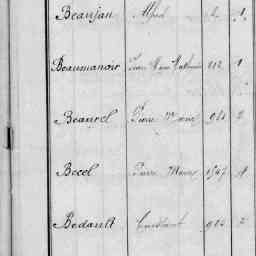 Beaujan Alfred 4 1
Beaumanoir Pierre Marie Mathurin 112 1
Beaurel Pierre Marie 2
Becel Pierre Marie 1547 4
Bedault Constant 2